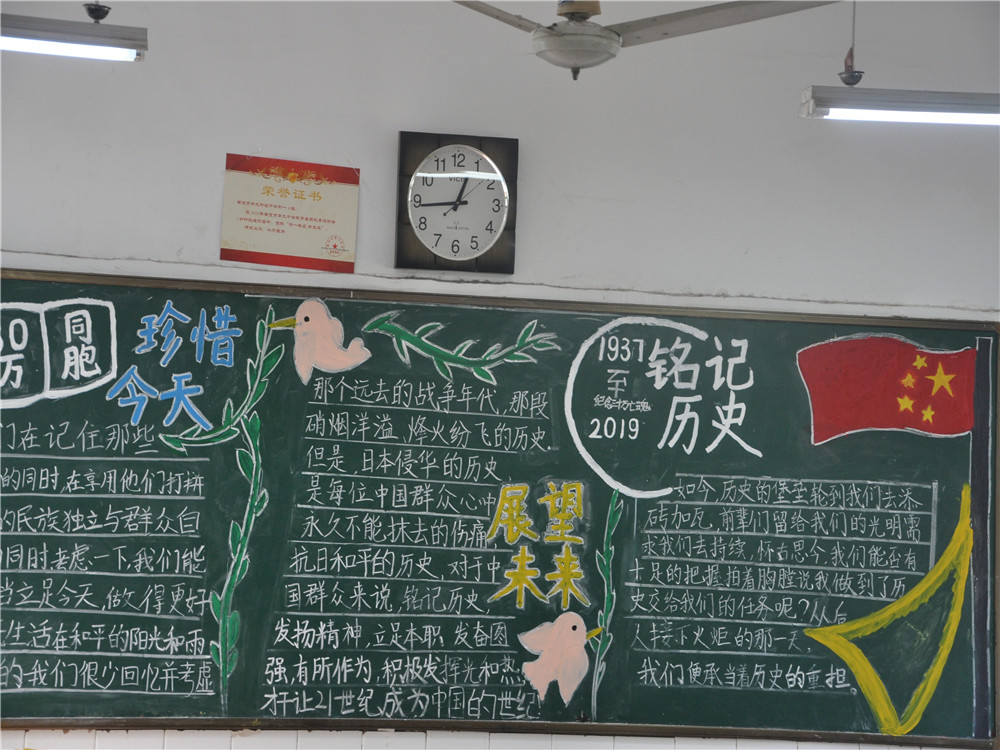 荣誉证书
11 12 1
10 2
9 3
8 4
7 6 5
0
万
同
胞
珍惜
今天
们在记住那些
的同时,在享用他们打拼
的民族独立与群众自
同时,考虑一下,我们能
当立足今天,做得更好
生活在和平的阳光和雨
的,我们很少回忆并考虑
那个远去的战争年代,那段
硝烟洋溢、烽火纷飞的历史.
但是,日本侵华的历史
是每位中国群众心中
永久不能抹去的伤痛,
抗日和平的历史,对于中
国群众来说,铭记历史,
发扬精神,立足本职,发奋图
强,有所作为,积极发挥光和热,
才让21世纪,成为中国的世纪
展望
未来
1937
至
2019
铭记
历史
如今,历史的堡垒轮到我们去添
砖加瓦,前辈们留给我们的光明需
求我们去持续,怀古思今,我们能否有
十足的把握,拍着胸膛说,我做到了历
史交给我们的任务呢?从后
人接下火炬的那一天,
我们便承当着历史的重担.